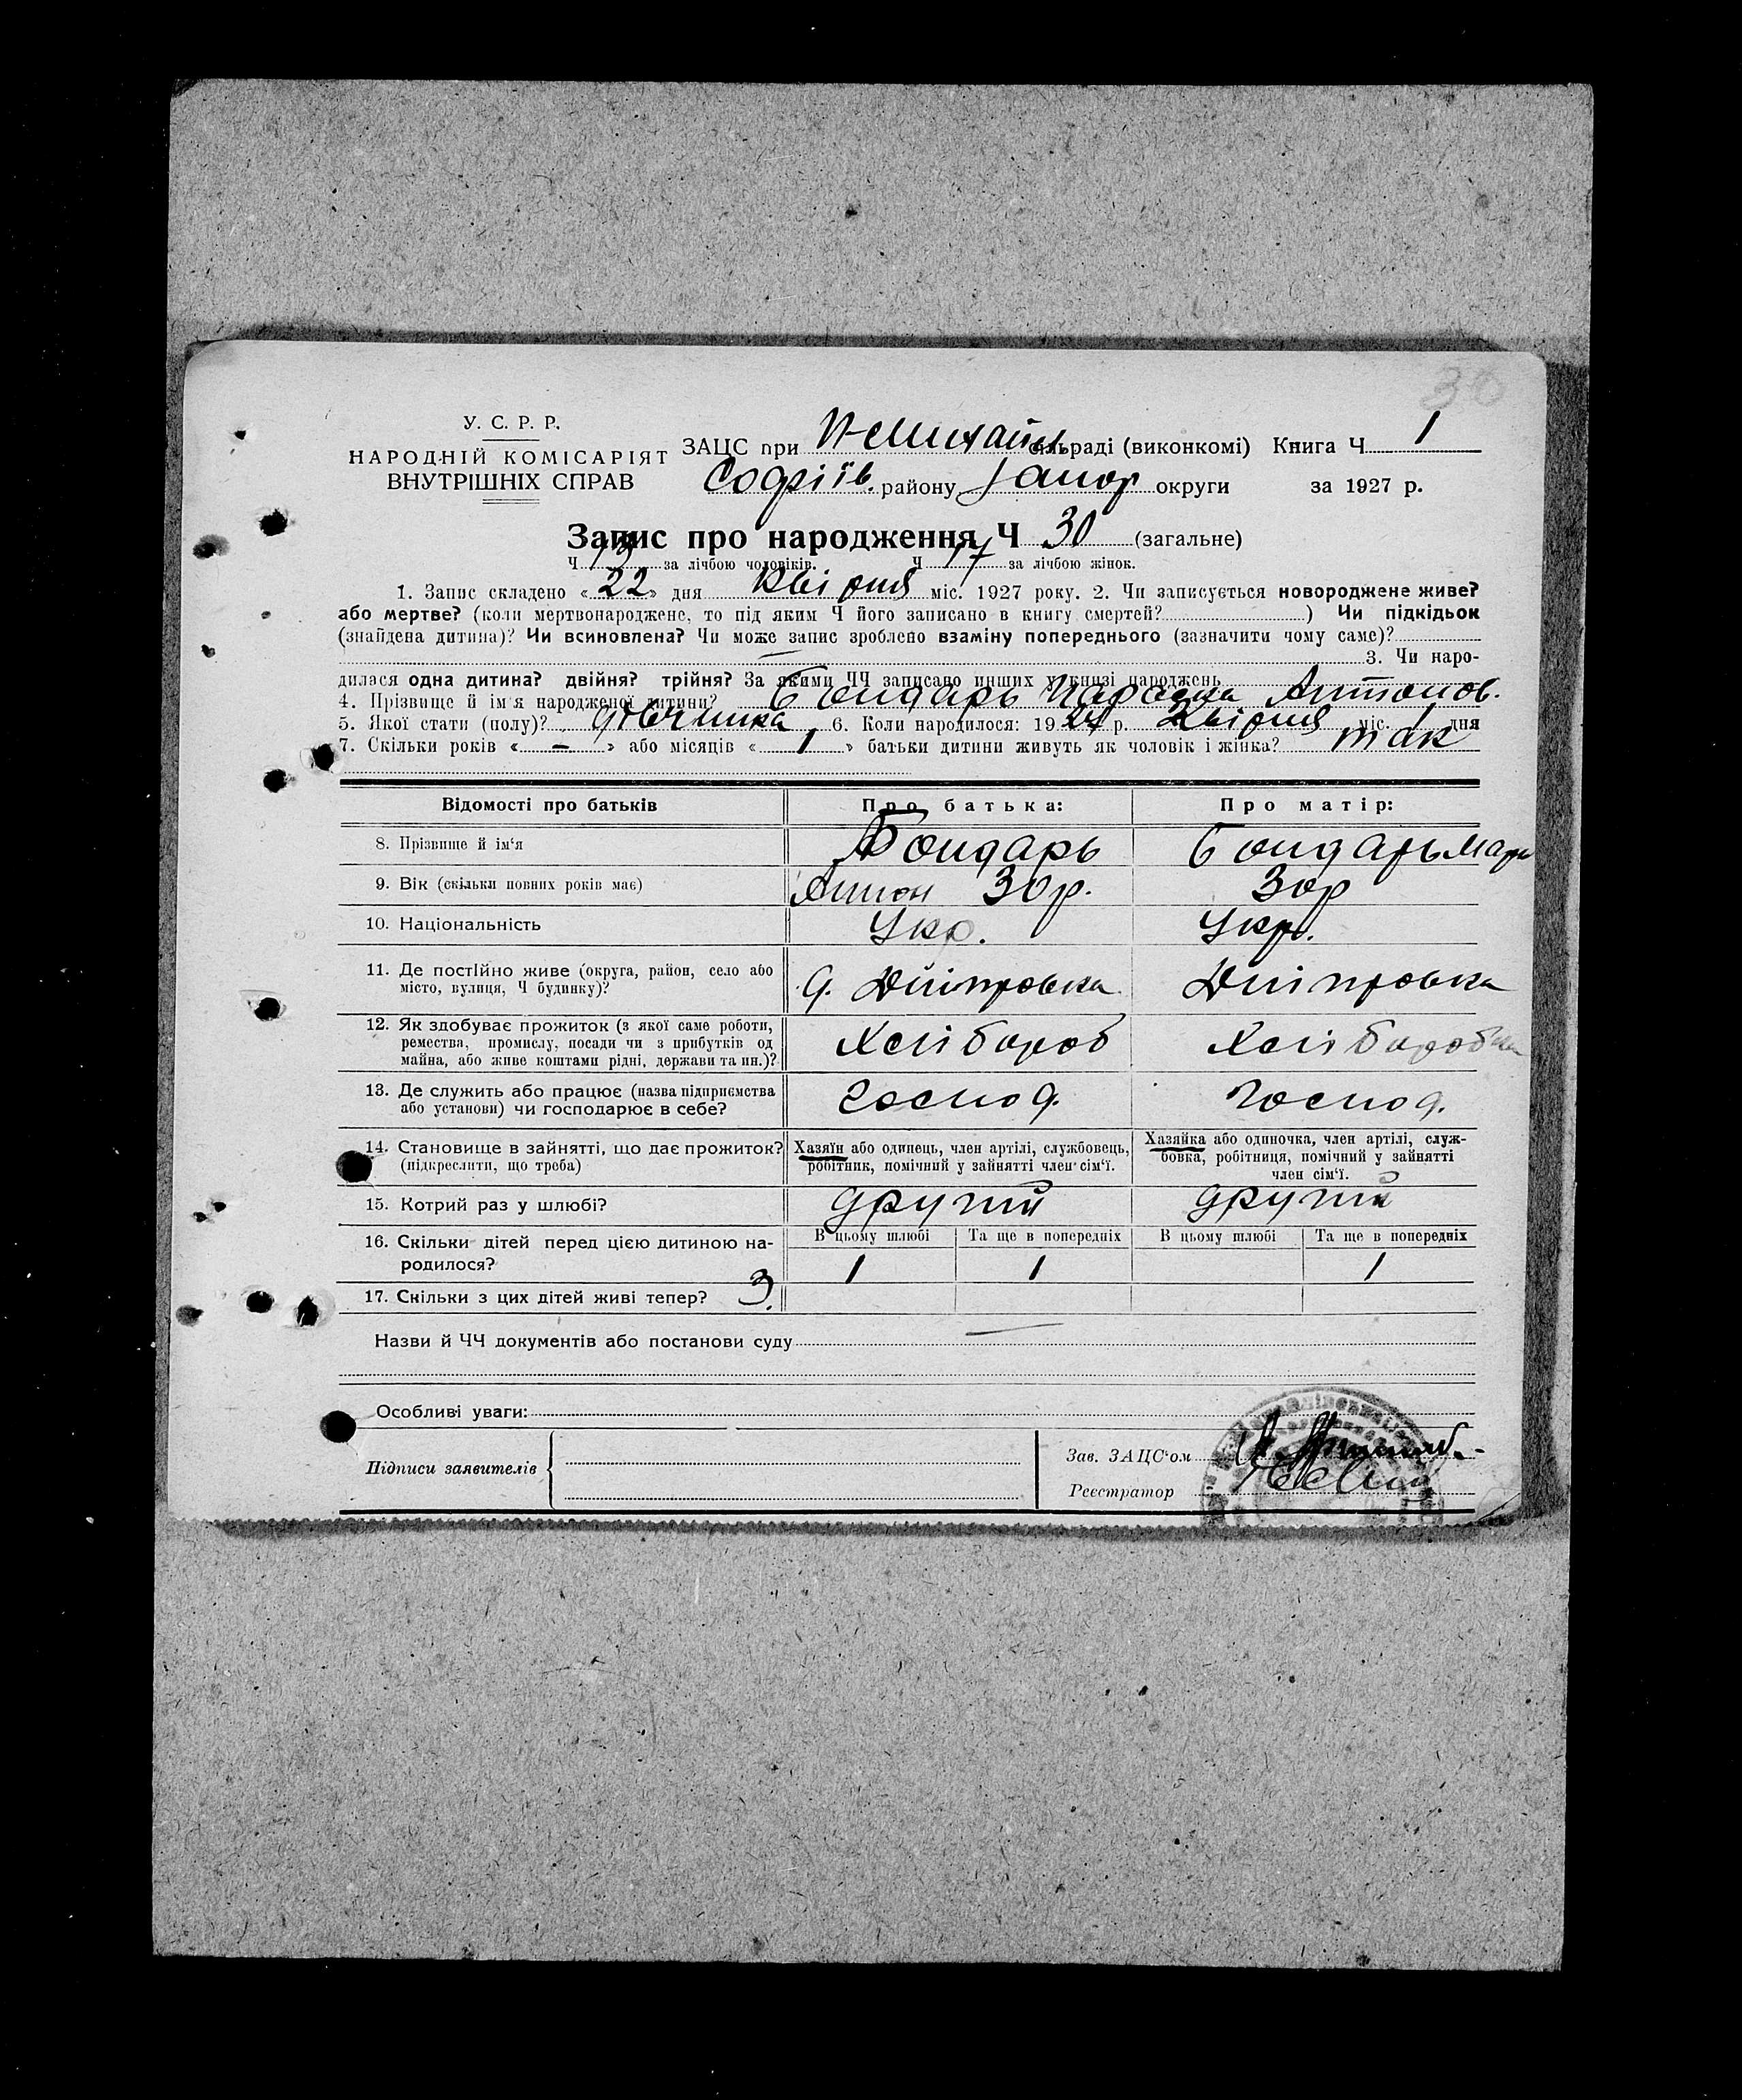 30
У. С. Р. Р.
НАРОДНІЙ КОМІСАРІЯТ
ВНУТРІШНІХ СПРАВ
ЗАЦС при сільраді (виконкомі) Книга Ч 1
Софіїв. району Запор округи за 1927 р.
Запис про народження Ч 30 (загальне)
Ч 13 за лічбою чоловіків. Ч 17 за лічбою жінок.
1. Запис складено « 22 » дня Квітня міс. 1927 року. 2. Чи записується новороджене живе?
або мертве? (коли мертвонароджене, то під яким Ч його записано в книгу смертей? ) Чи підкідьок
(знайдена дитина)? Чи всиновлена? Чи може запис зроблено взаміну попереднього (зазначити чому саме)?
— 3. Чи наро-
дилася одна дитина? двійня? трійня? За якими ЧЧ записано инших у книзі народжень
4. Прізвище й ім'я народженої дитини? Бондарь Параска Антонов.
5. Якої стати (полу)? дівчинка 6. Коли народилося: 1927 р. Квітня міс. 1 дня
7. Скільки років « – » або місяців « 1 » батьки дитини живуть як чоловік і жінка? так
Відомості про батьків Про батька: Про матір:
8. Прізвище й ім'я Бондарь Бондарь Мари
9. Вік (скільки повних років має) Антон 30р. 30р
10. Національність Укр. Укр.
11. Де постійно живе (округа, район, село або
місто, вулиця, Ч будинку)? д. Дніпровка Дніпровка
12. Як здобуває прожиток (з якої саме роботи,
ремества, промислу, посади чи з прибутків од
майна, або живе коштами рідні, держави та ин.)? Хлібороб Хліборобка
13. Де служить або працює (назва підприємства
або установи) чи господарює в себе? Господ. Господ.
14. Становище в зайнятті, що дає прожиток?
(підкреслити, що треба)
Хазяїн або одинець, член артілі, службовець,
робітник, помічний у зайнятті член сім'ї.
Хазяйка або одиночка, член артілі, служ-
бовка, робітниця, помічний у зайнятті
член сім'ї.
15. Котрий раз у шлюбі? другий другий
16. Скільки дітей перед цією дитиною на-
родилося?
В цьому шлюбі Та ще в попередніх В цьому шлюбі Та ще в попередніх
1 1 1
17. Скільки з цих дітей живі тепер? 3.
Назви й ЧЧ документів або постанови суду —
Особливі уваги:
Підписи заявителів
Зав. ЗАЦС'ом
Реєстратор